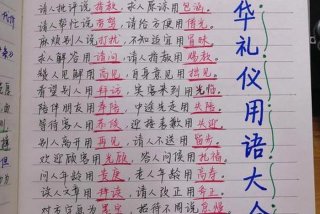 请人批评说指教 求人原谅用包涵
请人帮忙说劳驾 请给方便用借光
麻烦别人说打扰 不知适宜用冒昧
求人解答用请问 请人指教用赐教
赞人见解用高见 自身意见用拙见
看望别人用拜访 宾客来到用光临
陪伴朋友用奉陪 中途先走用失陪
等待客人用恭候 迎接表歉用失迎
别人离开用再见 请人不送用留步
欢迎顾客用光顾 答人问候用托福
问人年龄用贵庚 老人年龄用高寿
读人文章用拜读 请人改正用斧正
对方字画为墨宝 招待不周说怠慢
礼仪用语大